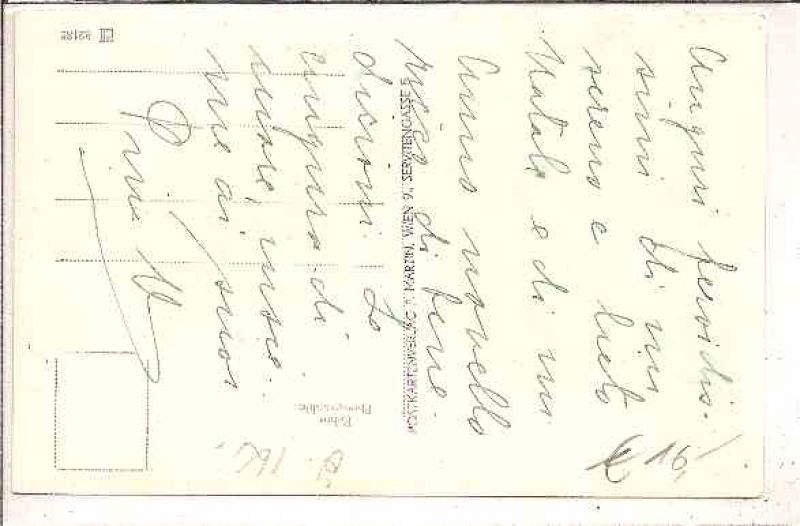 Auguri fervidis-
simi di un
sereno e lieto
Natale e di un
Anno novello
ricco di bene-
dizioni. Lo
auguro di
cuore, insie-
me ai suoi
POSTKARTENVERLAG MARTIN, WIEN 9., SERVITENGASSE 5
Echte
Photographie
16,